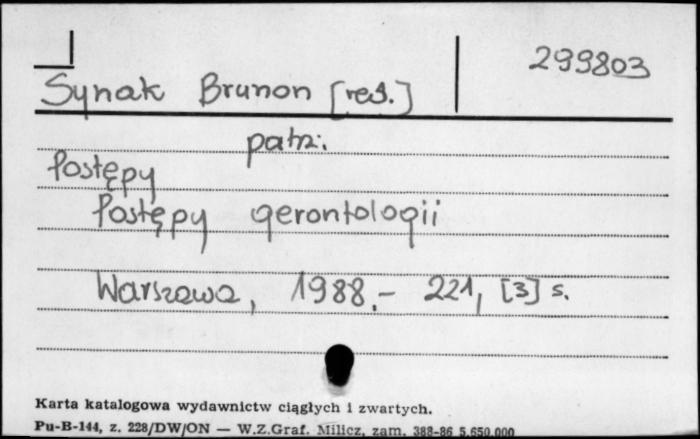 299803
Synak Brunon [red.]
patrz:
Postępy
Postępy gerontologii
Warszawa, 1988.- 221, [3] s.
Karta katalogowa wydawnictw ciągłych i zwartych.
Pu-B-144, z. 228/DW/ON — W.Z.Graf. Milicz, zam. 388-86 5.650.000